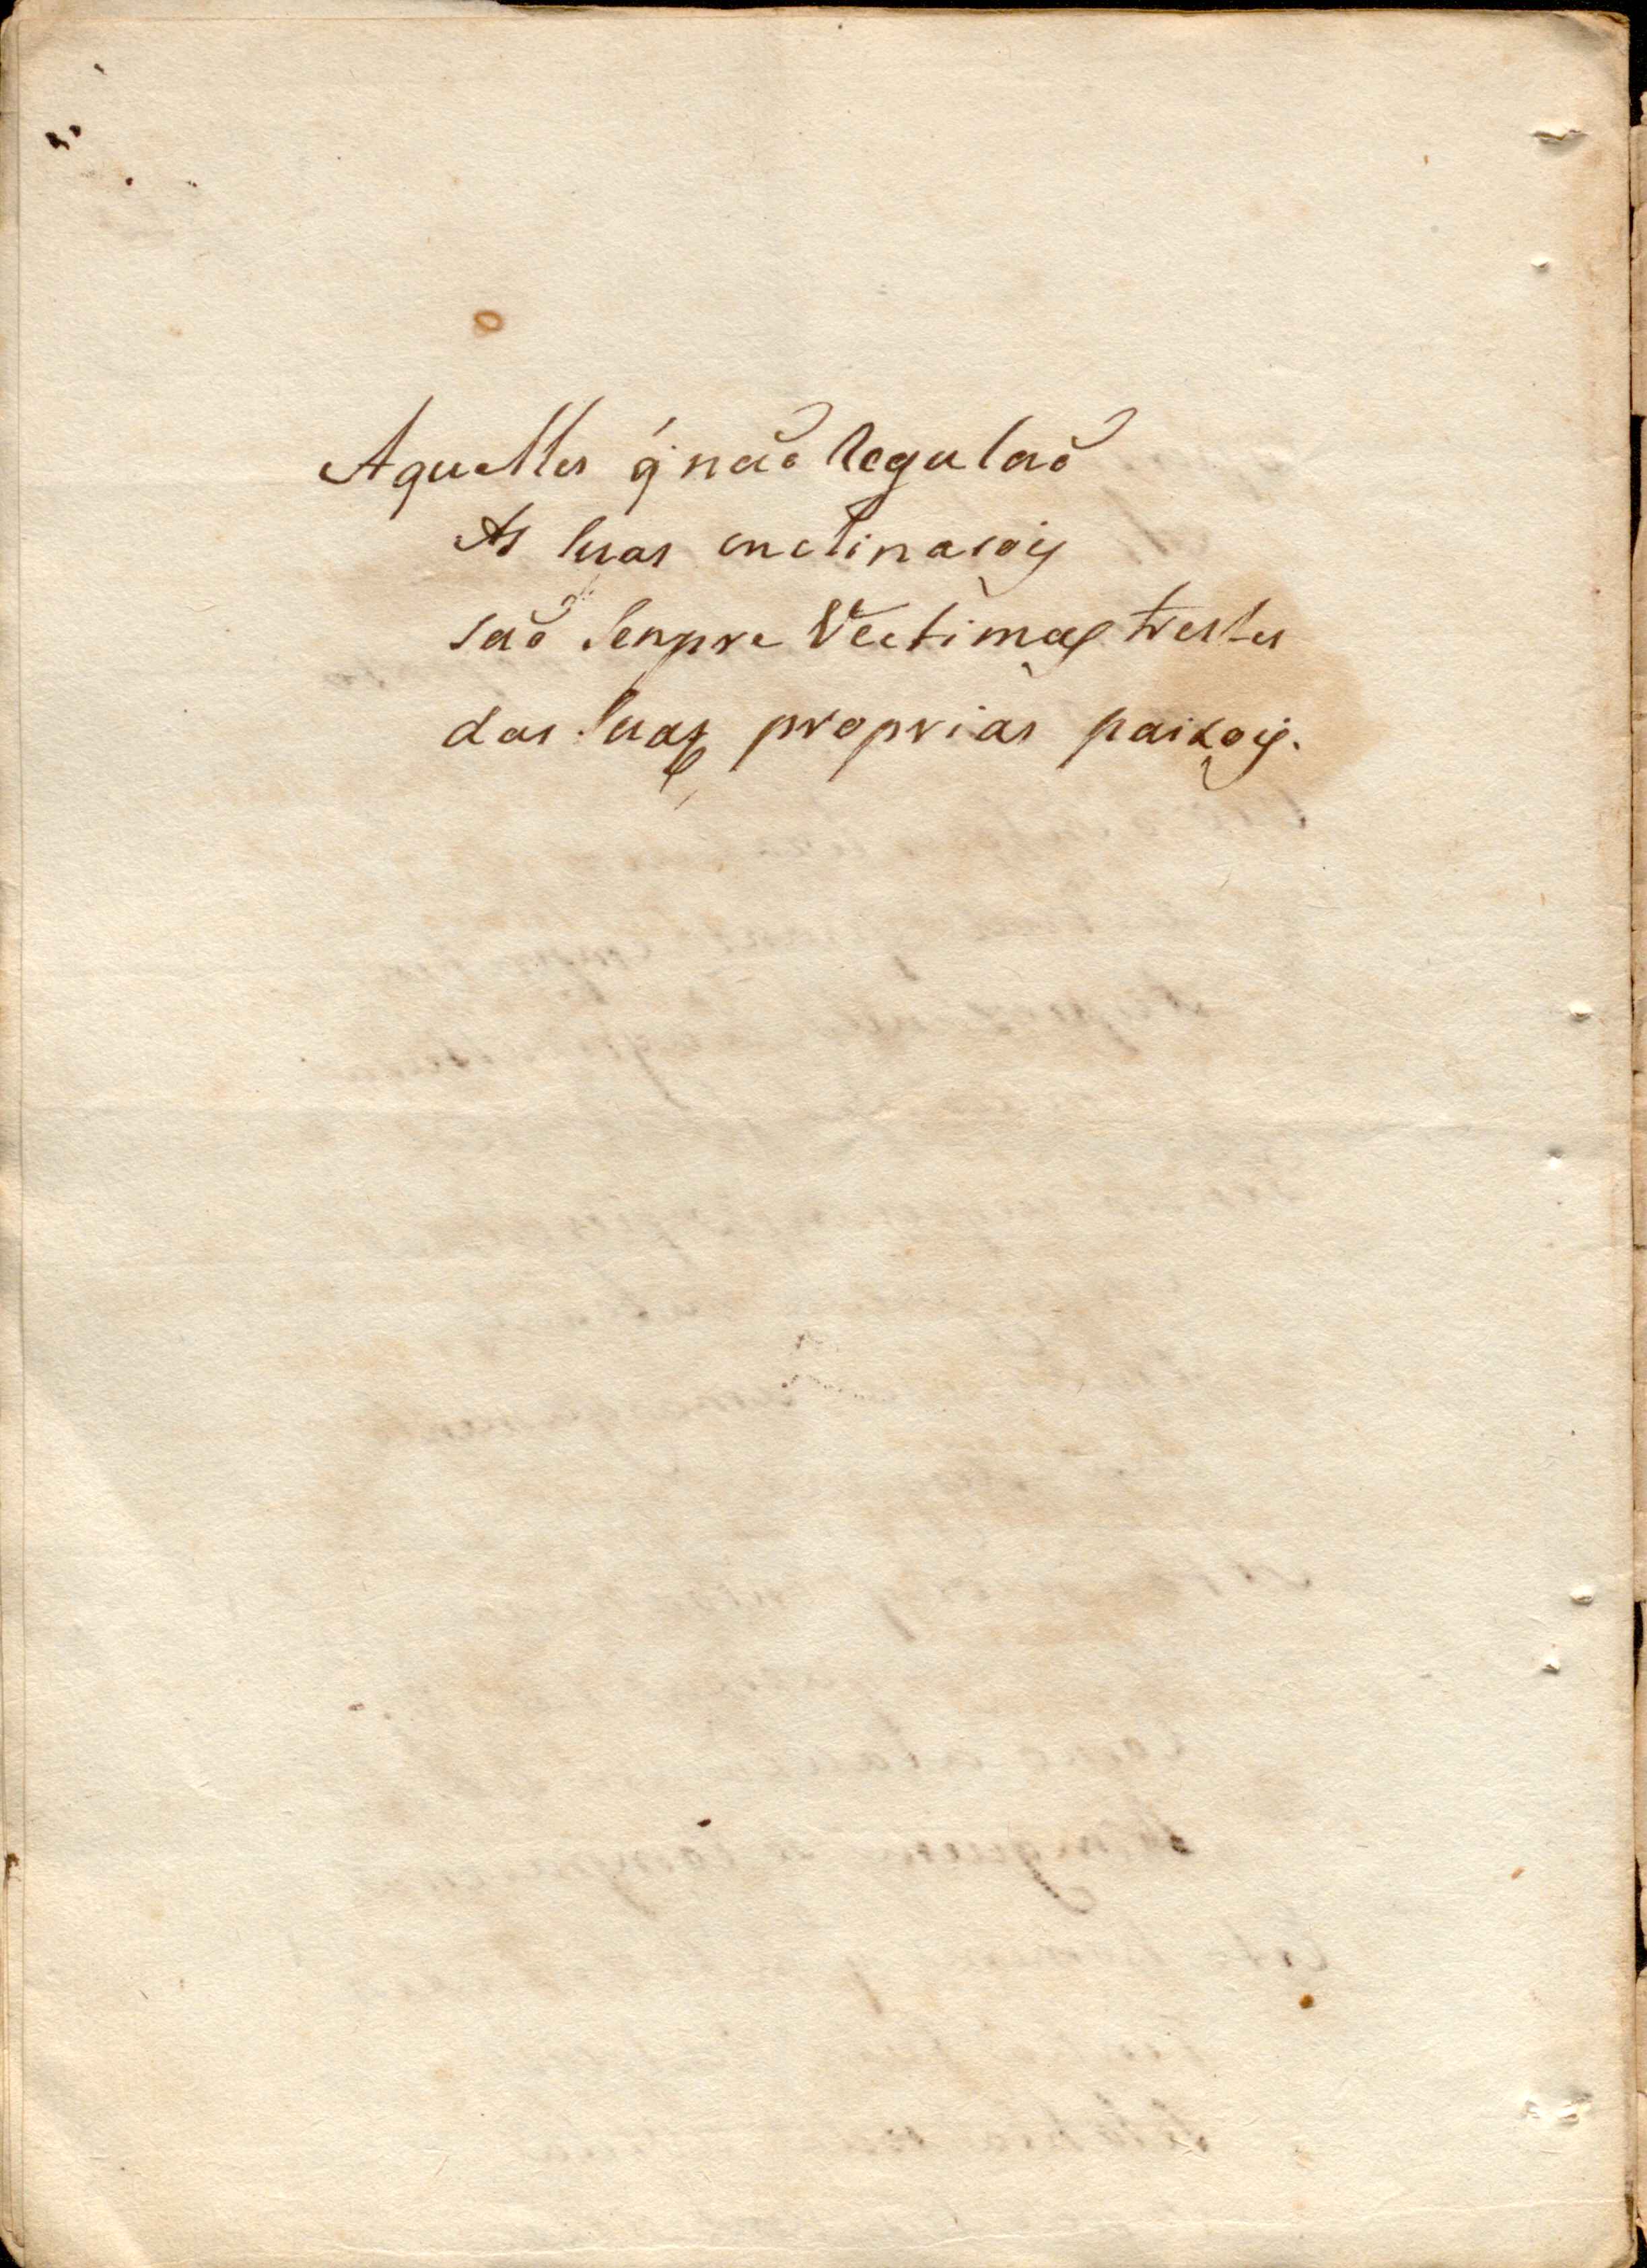 Aquelles q́ naõ Regulaõ
As suas enclinasois
saõ senpre Vectimas trestes
das suas proprias paixois.